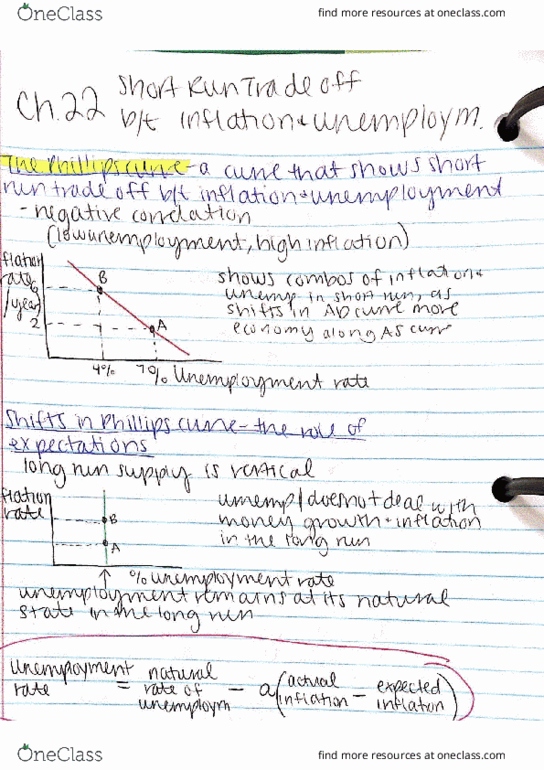 OneClass
find more resources at oneclass.com
Ch.22 Short Run Trade off
b/t inflation + unemploym.
The Phillips curve - a curve that shows short
run trade off b/t inflation + unemployment
- negative correlation
(low unemployment, high inflation)
flation
rate
/year
6
B
2
A
4%
7%
Unemployment rate
shows combos of inflation +
unemp in short run, as
shifts in AD curve move
economy along AS curve
Shifts in Phillips curve - the role of
expectations
long run supply is vertical
flation
rate
B
A
% unemployment rate
unempl does not deal with
money growth + inflation
in the long run
unemployment remains at its natural
state in the long run
unemployment rate = natural rate of unemploym - a(actual inflation - expected inflation)
OneClass
find more resources at oneclass.com